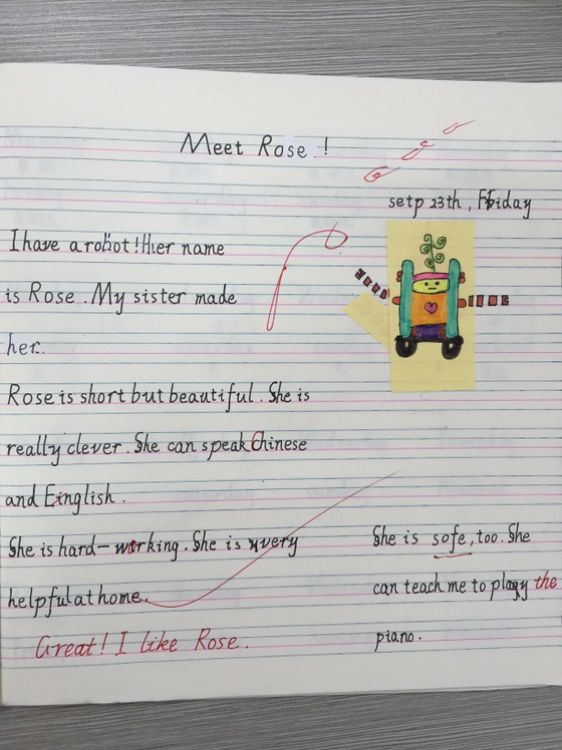 Meet Rose!
setp 23th, Friday
I have a robot! Her name
is Rose. My sister made
her.
Rose is short but beautiful. She is
really clever. She can speak Chinese
and Einglish.
She is hard-working. She is very
helpful at home.
She is sofe, too. She
can teach me to play the
piano.
Great! I like Rose.